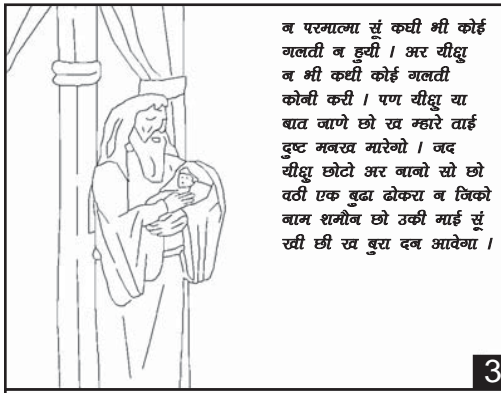 न परमात्मा सूं कघी भी कोई
गलती न हुयी । अर यीक्षु
न भी कधी कोई गलती
कोनी करी । पण यीक्षु या
बात जाणे छो ख म्हारे ताई
दुष्ट मनख मारेगो । जद
यीक्षु छोटो अर नानो सो छो
वठी एक बुढा ढोकरा न जिको
नाम शमौन छो उकी माई सूं
खी छी ख बुरा दन आवेगा ।
3